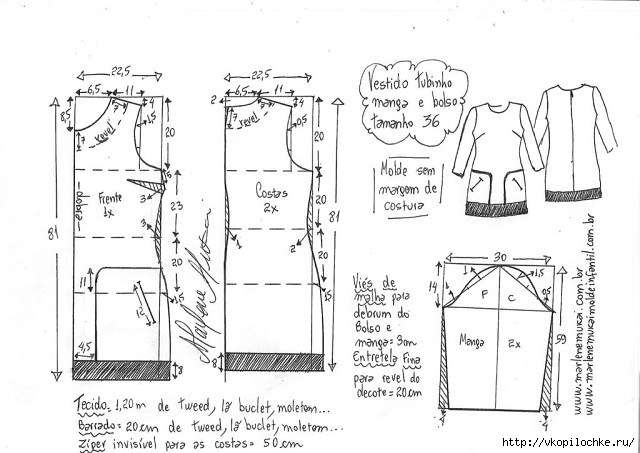 22,5
6,5
11
4
8,5
7
7
revel
1,5
20
81
dobra
Frente
1x
3
3
23
20
11
12
1,5
4,5
8
22,5
2
6,5
11
4
7
7
revel
0,5
20
Costas
2x
1
2
20
81
20
1,5
8
8
Marlene Mukai
Vestido tubinho
manga e bolso
tamanho 36
Molde sem
margem de
costura
Viés de
malha para
debrum do
Bolso e
manga = 3m
Entretela Fina
para revel do
decote = 20cm
30
14
1
1,5
0,5
P
C
Manga
2x
59
4
4
www.marlenemukai.com.br
www.marlenemukaimoldeinfantil.com.br
Tecido = 1,20m de tweed, lã buclet, moletom...
Barrado = 20cm de tweed, lã buclet, moletom...
Ziper invisível para as costas = 50cm
http://vkopilochke.ru/